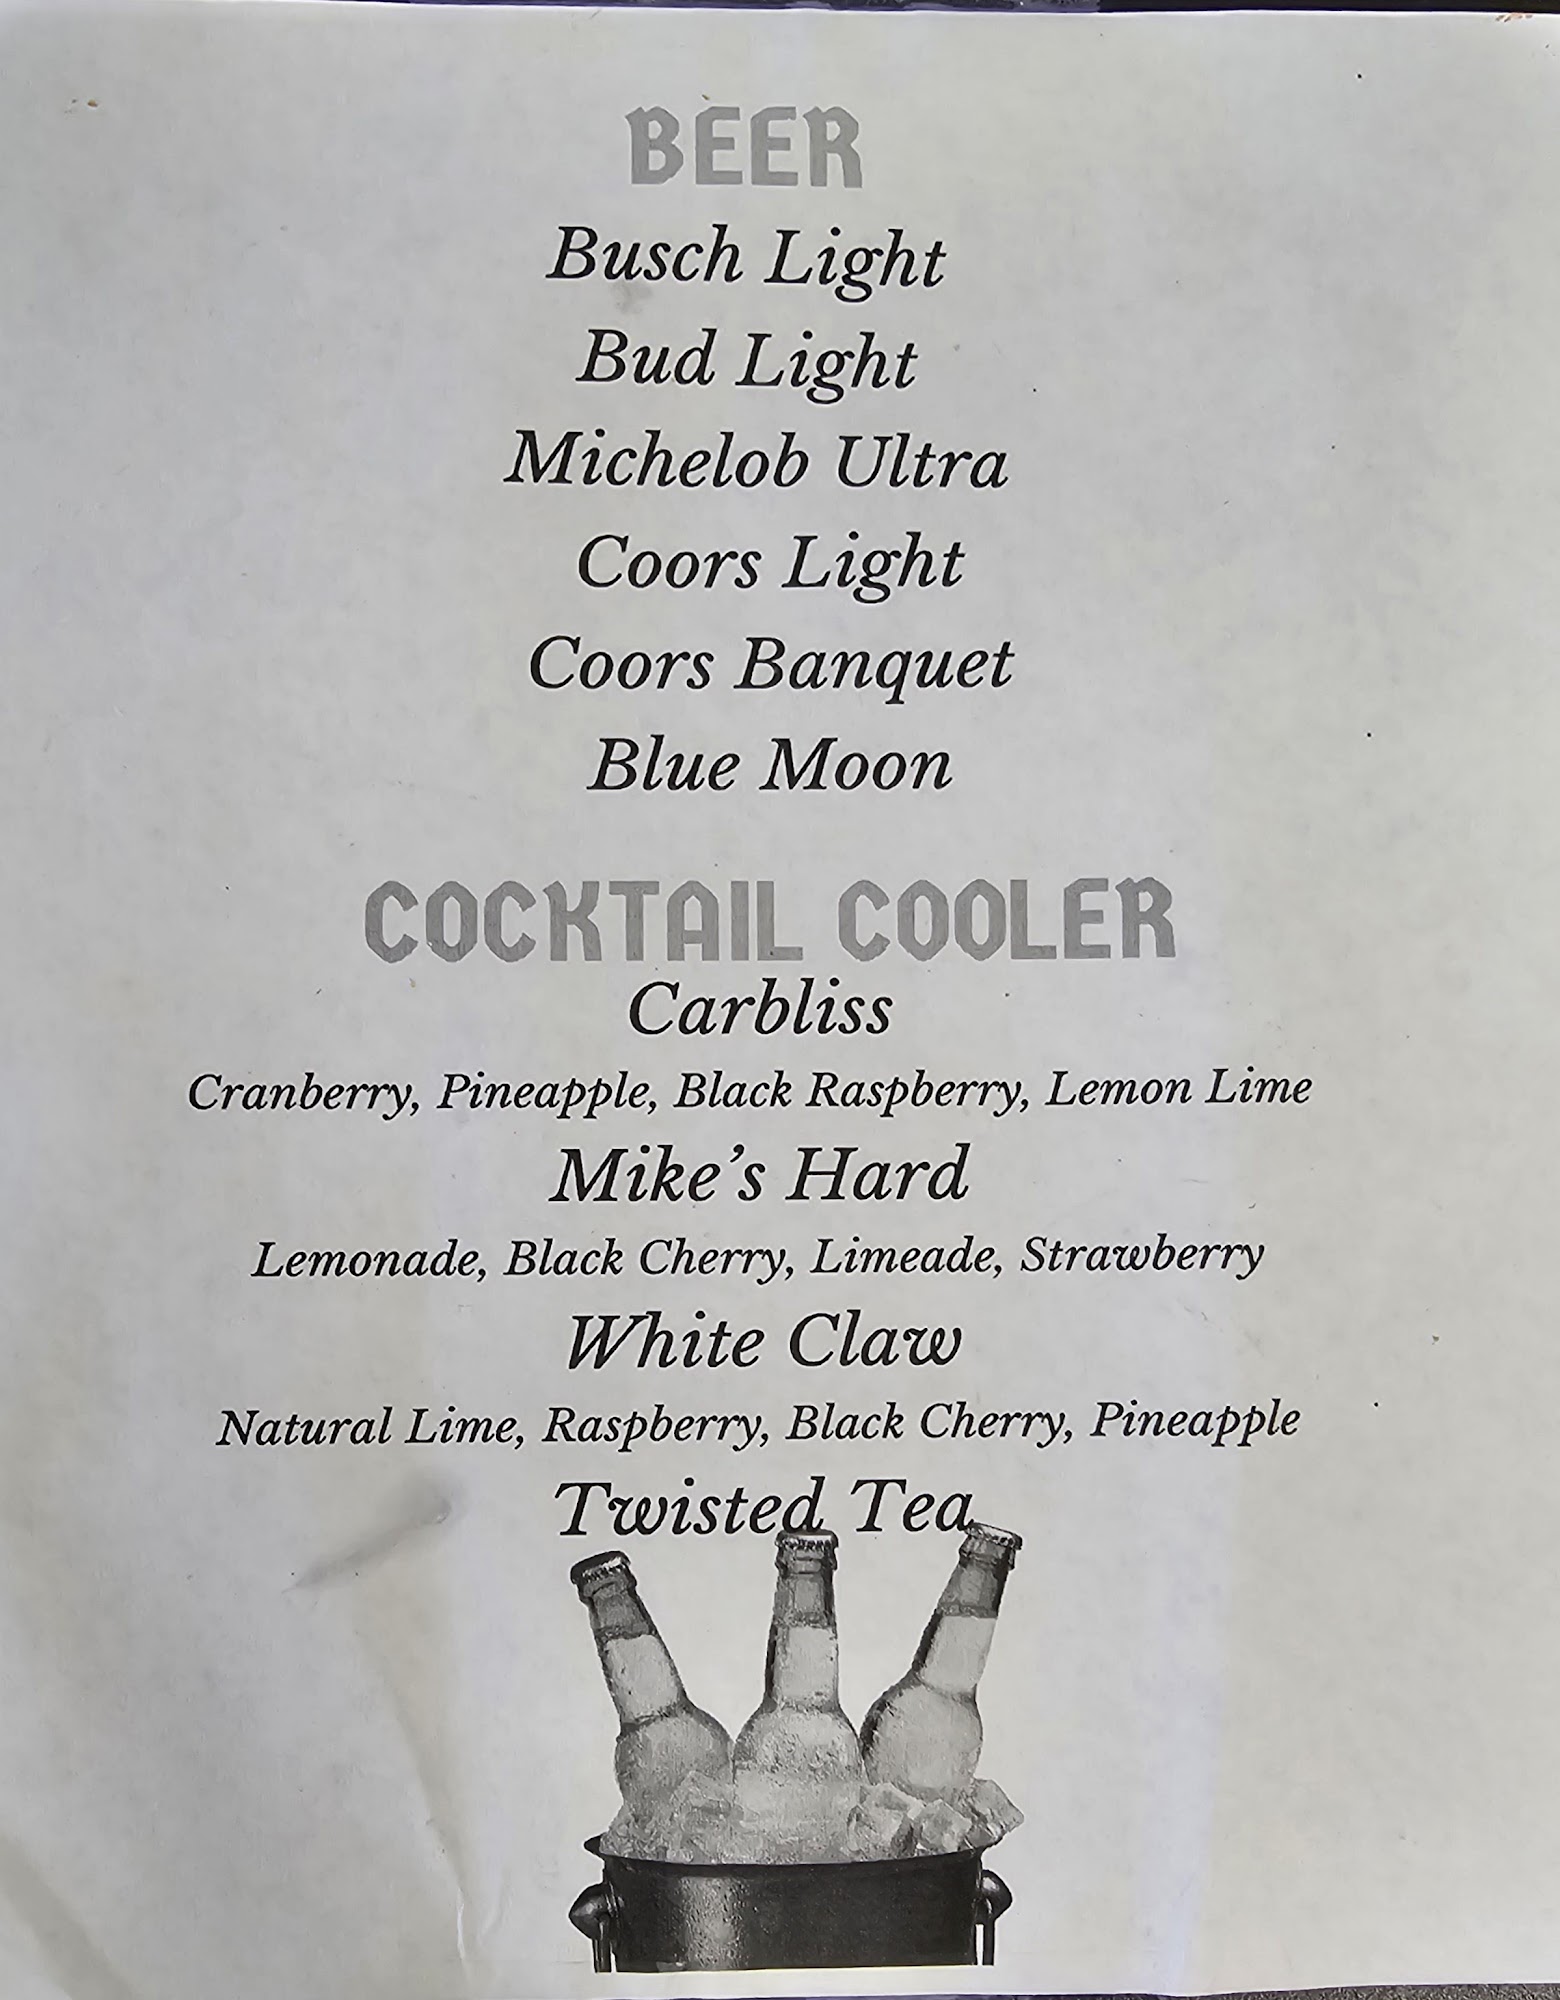 BEER
Busch Light
Bud Light
Michelob Ultra
Coors Light
Coors Banquet
Blue Moon
COCKTAIL COOLER
Carbliss
Cranberry, Pineapple, Black Raspberry, Lemon Lime
Mike’s Hard
Lemonade, Black Cherry, Limeade, Strawberry
White Claw
Natural Lime, Raspberry, Black Cherry, Pineapple
Twisted Tea